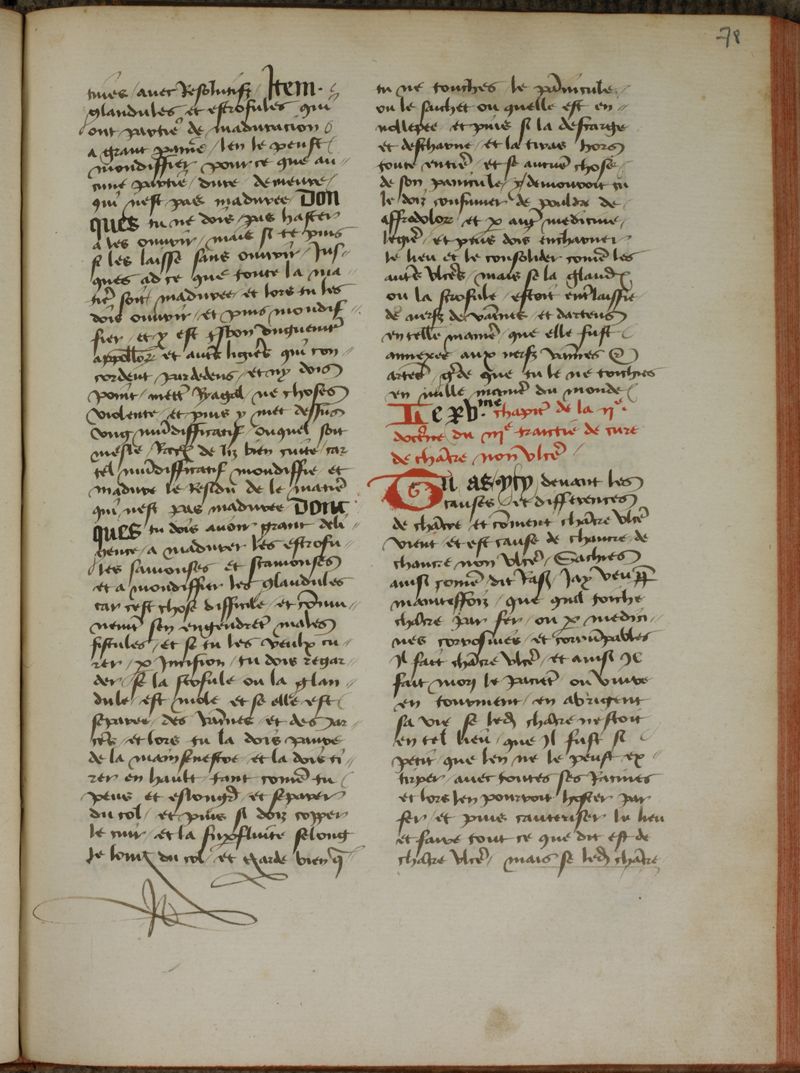 78
tives / avec Resolutifz / Item ·
glandules et escrofules qui
ont partie de maduracion
a grant paine / len le peust
mondiffier pour ce que au=
cune partie / dure / demeure /
qui nest pas maduree Don
ques tu ne dois / pas haster
a les ouvrir / mais se te puis
se les laisse sans ouvrir / Jus=
ques ad ce que toute la ma=
tiere soit maduree et lors tu les
dois ouvrir / et puis mondif
fier / et est bon unguent
et autres legiers qui con=
cordent par dedens / et ny dois
point / mettre choses
violente / et puis y met dessus
ung mundifficatif ouquel soit
mesle Racine de liz bien cuite / car
tel mundifficatif mondiffie et
madure le Residu de le matiere
qui nest pas maduree Donc
ques tu dois avoir grant deli=
gence / a madurer les escrofu=
les et
et a mondiffier les glandules
car cest chose difficile / et commu=
nement sen engendrent males
fistules / et se tu les veulx cu=
rer / par Incision / tu dois regar=
der / se la scrofule ou la glan=
dule / est mole et se elle est
separee / des vaines / et des ar=
teres / et lors tu la dois panre
de la main senestre / et la dois ti=
rer en hault / tant come tu
peus et eslonger / et separer
du col / et puis si doiz copper
le cuir / et la superfluite selong
le long du col / et garde bien que
tu ne touches le pannicule /
ou le sachet ou quelle est en=
vollepee / et puis si la descarge
et descharne / et la tiras hors
toute entiere / et se aucune chose
de son panicule / y demouroit tu
le doiz consumer de pouldre de
affrodolor / et par autre medicine /
legiere / et puis dois encharner
le lieu et le consolider come les
autres ulceres / mais se la glande
ou la scrofule / estoit entrelassee
de nerfz de vaines et darteres
en telle maniere / que elle fust
annexee aux nerfz vaines et
arteres / garde que tu le ne touches
en nulle maniere du monde
Le xv.me chapitre de la iie.
doctrine du iiie traictie de cure
de chancre non ulcere /
Tu as ouy devant les
causes / et differences
de chancre / et coment chancre ulcere
vient et est cause de chancre de
chancre non ulcere / Saches
ainsi come dit Rasis / Jay veu par
maintesfoiz / que quil touche
chancre par fer / ou par medici=
nes corrosives / et corrumpables
Il fait chancre ulcere / et ainsi Il
fait mori le pacient ou vivre
en tourment / en abrigent
sa vie se ledit chancre nestoit
en tel lieu / que Il fust si
petit que len ne le peust ex=
tirper / avec toutes ses Racines
et lors len pourroit hoster par
fer / et puis cauteriser le lieu
et faire tout ce que dit est de
chancre ulcere / mais se ledit chancre